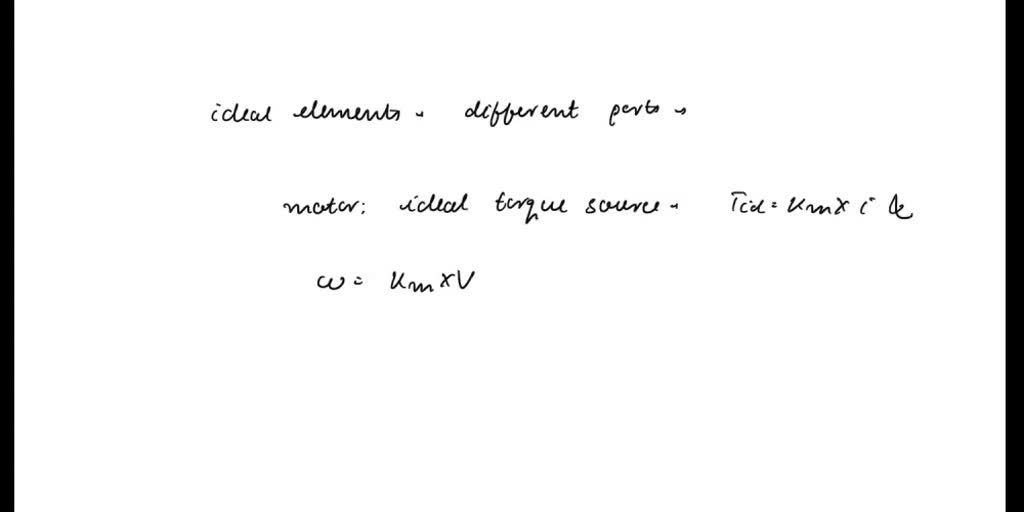 ideal elements. different parts.
motor: ideal torque source. Tid = Km x i &
ω = Km x V